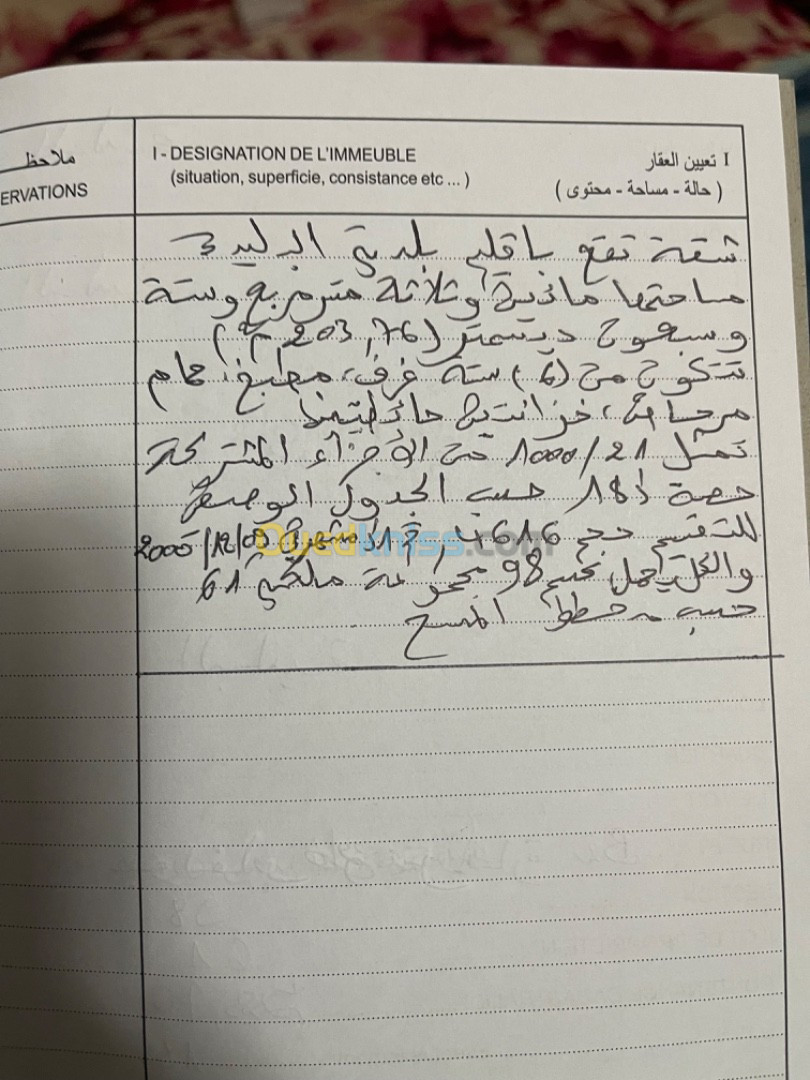 ملاحظ
ERVATIONS
I - DESIGNATION DE L'IMMEUBLE
(situation, superficie, consistance etc ... )
I تعيين العقار
( حالة - مساحة - محتوى )
شقة تقع باقليم بلدية البليدة
مساحتها مائتين وثلاثة متر مربع وستة
وسبعون ديسمتر (203,76 م²)
تتكون من (6) ستة غرف، مطبخ، حمام
مرحاض، خزانتين حائطيتين
تمثل 1000/21 من الأجزاء المشتركة
حصة 181 حسب الجدول الوصفي
للتقسيم حجم 616 2005/12/03
والكل يحمل قسم 98 مجموعة ملكية 61
حسب مخطط المسح
Ouedkniss.com